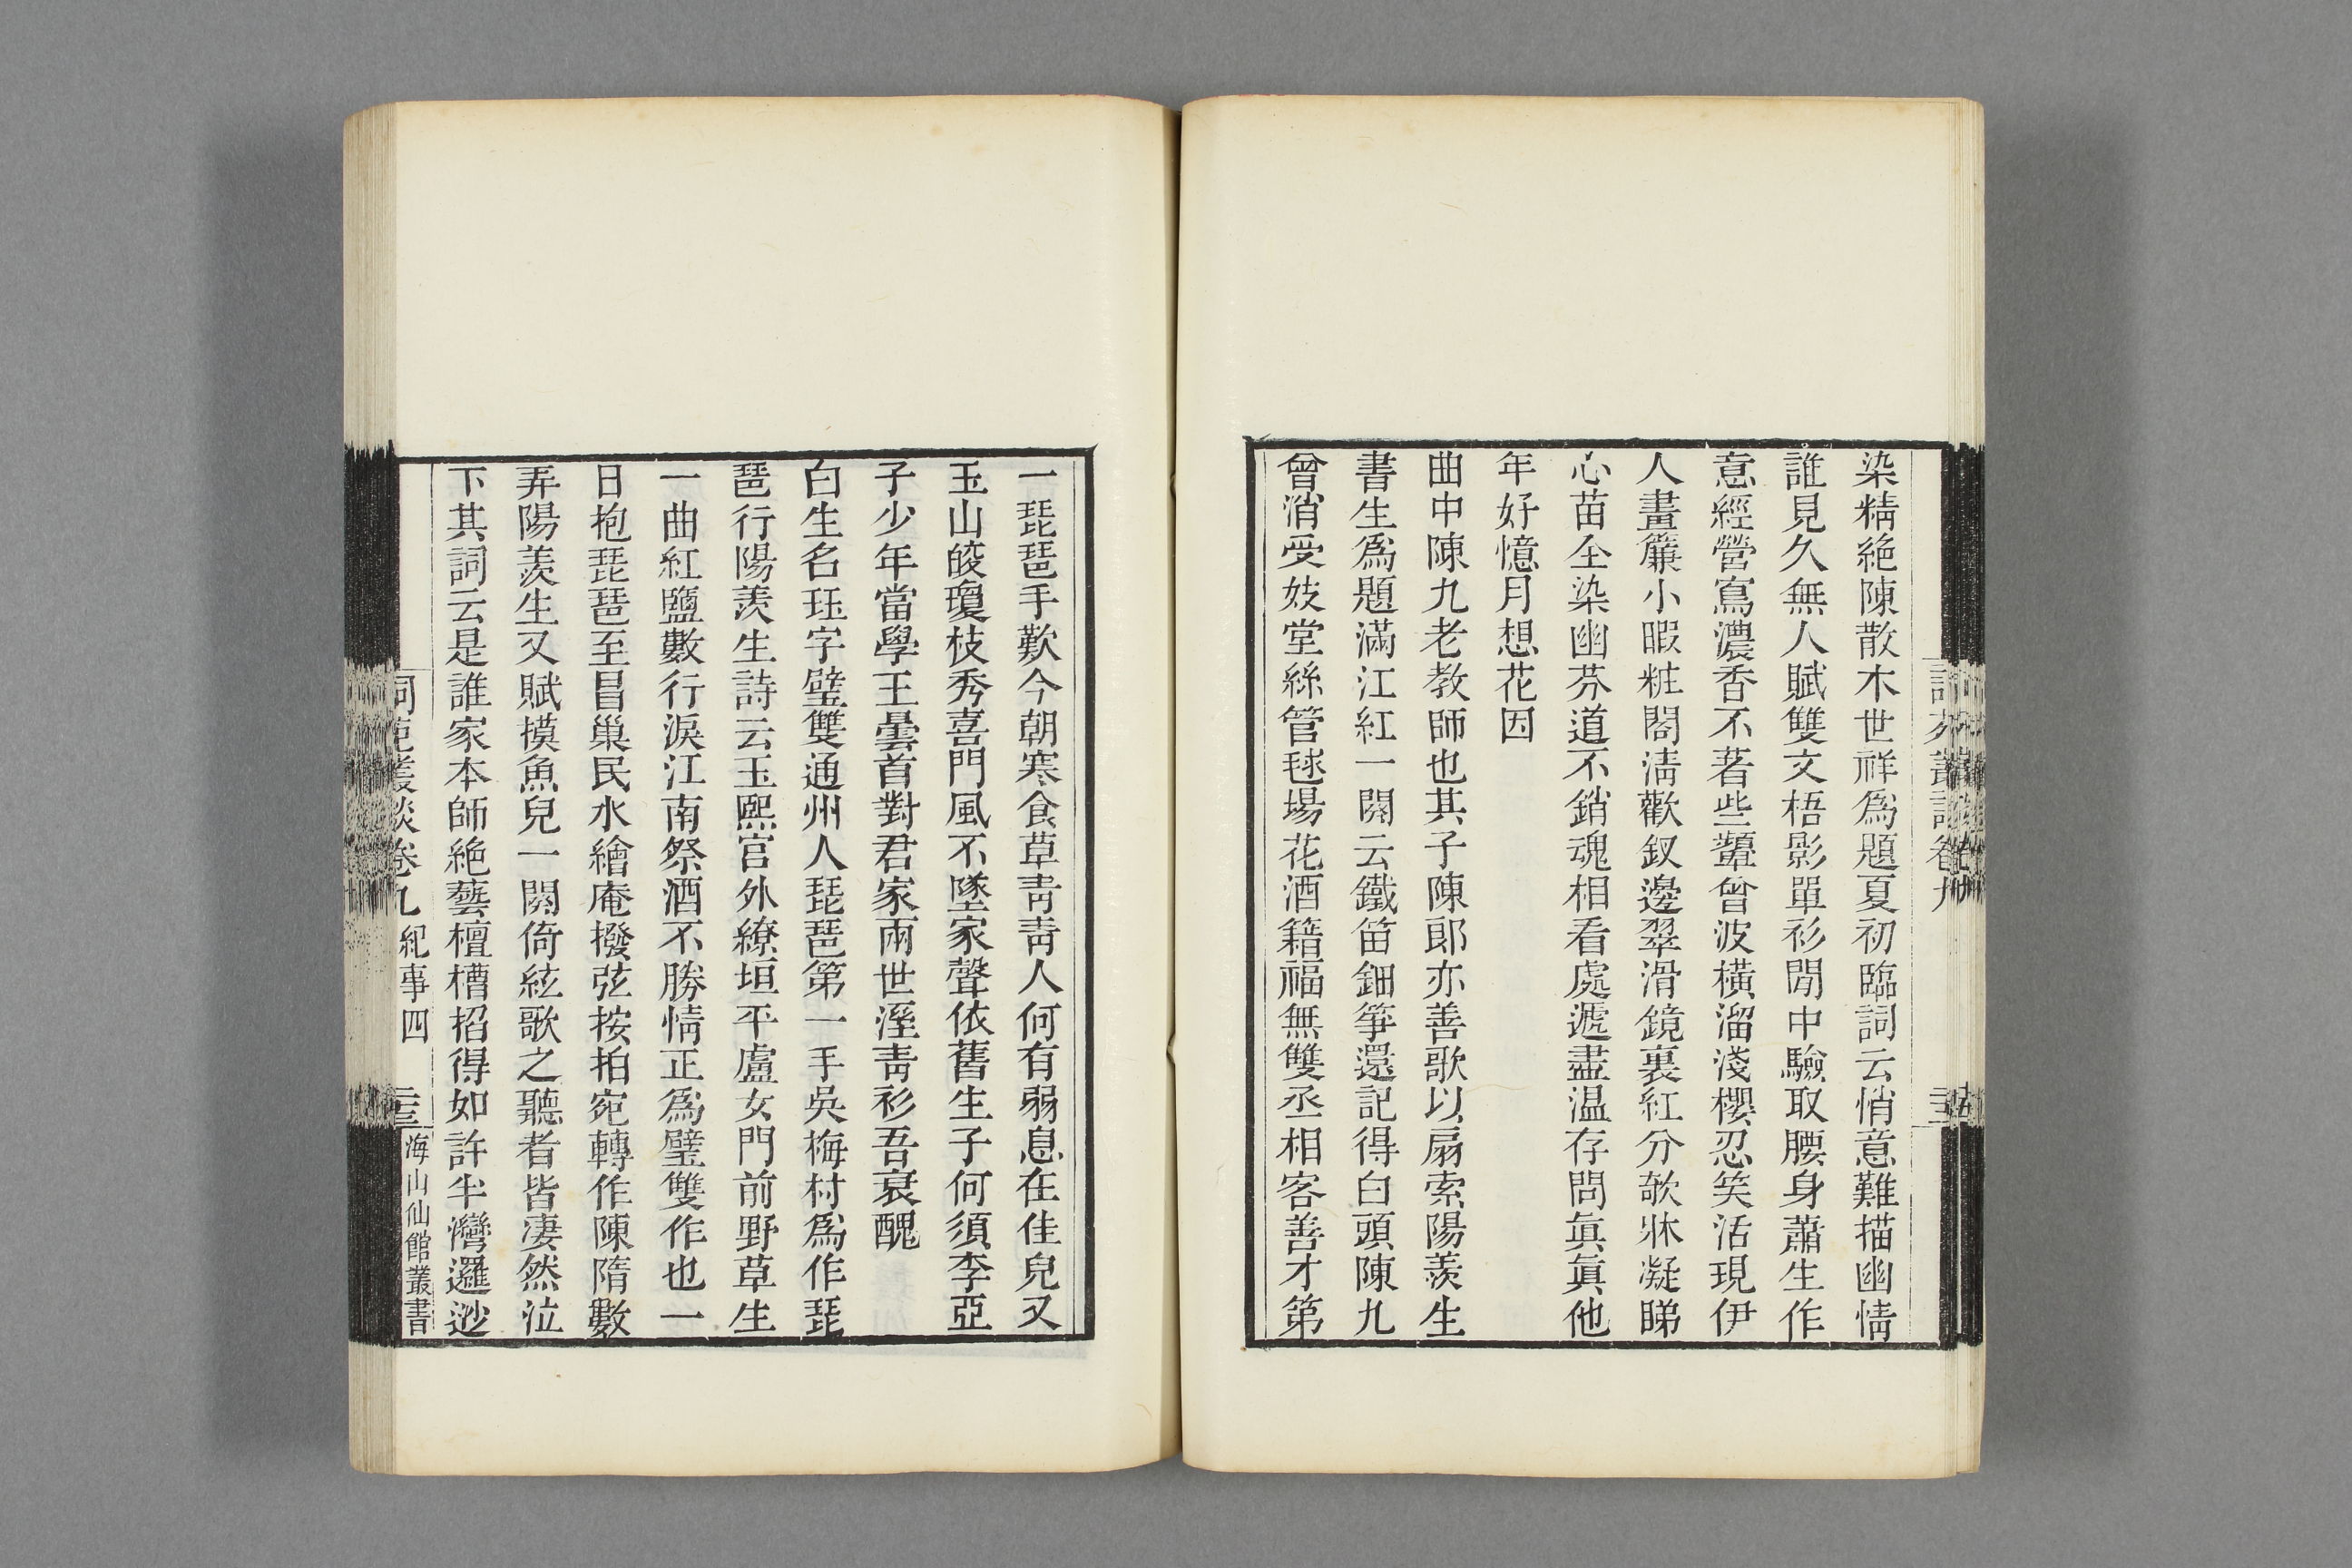 染精絶陳散木世祥爲題夏初臨詞云悄意難描幽情
誰見久無人賦雙文梧影單衫閒中驗取腰身蕭生作
意經營寫濃香不著些顰曾波橫溜淺櫻忍笑活現伊
人畫簾小暇粧閣淸歡釵邊翠滑鏡裏紅分欹牀凝睇
心苗全染幽芬道不銷魂相看處遞盡温存問眞眞他
年好憶月想花因
曲中陳九老教師也其子陳郎亦善歌以扇索陽羨生
書生爲題滿江紅一闋云鐵笛鈿箏還記得白頭陳九
曾消受妓堂絲管毬場花酒籍福無雙丞相客善才第
一琵琶手歎今朝寒食草靑靑人何有弱息在佳兒又
玉山皎瓊枝秀喜門風不墜家聲依舊生子何須李亞
子少年當學王曇首對君家兩世溼靑衫吾衰醜
白生名珏字璧雙通州人琵琶第一手吳梅村爲作琵
琶行陽羨生詩云玉熙宮外繚垣平盧女門前野草生
一曲紅鹽數行淚江南祭酒不勝情正爲璧雙作也一
日抱琵琶至冒巢民水繪庵撥弦按拍宛轉作陳隋數
弄陽羨生又賦摸魚兒一闋倚絃歌之聽者皆凄然泣
下其詞云是誰家本師絶藝檀槽搯得如許半灣邏逤
詞苑叢談卷九 紀事四 三 海山仙館叢書